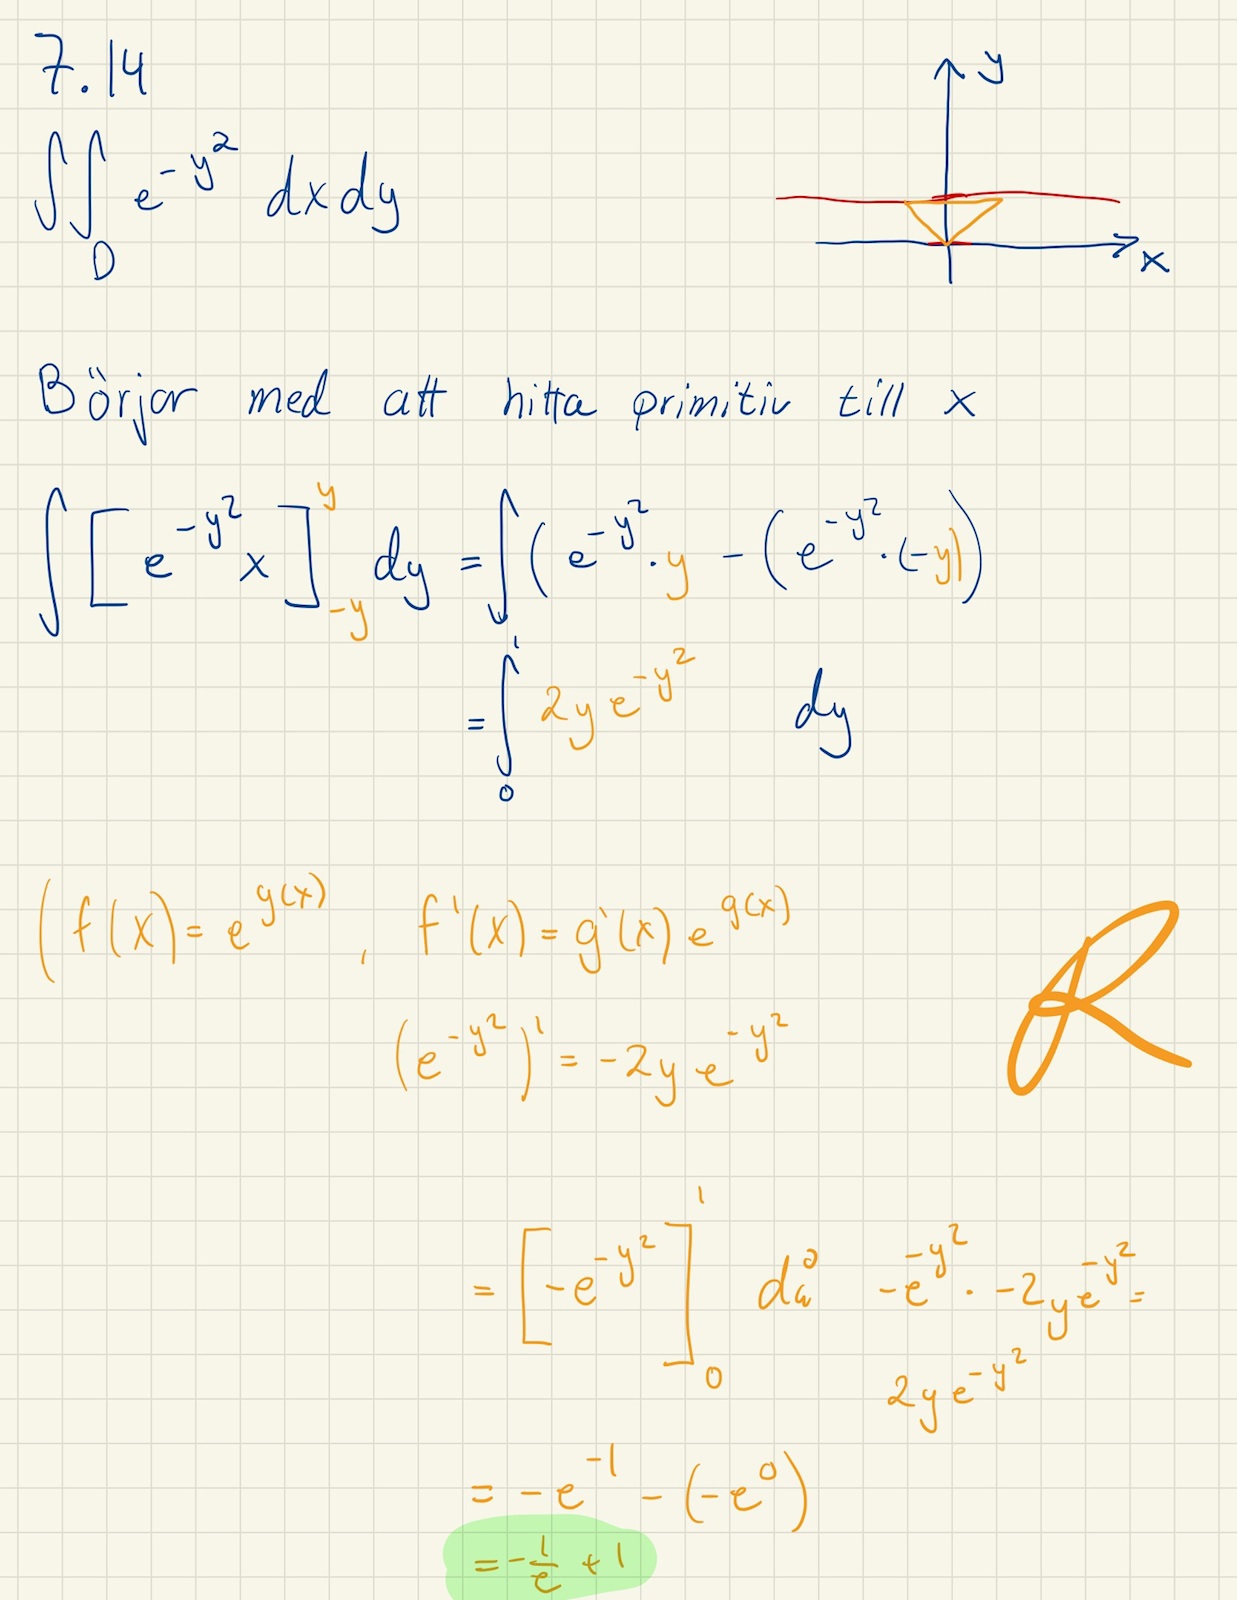 7.14
y
∫∫_D e^{-y^2} dxdy
x
Börjar med att hitta primitiv till x
∫ [e^{-y^2} x]_{-y}^{y} dy = ∫ (e^{-y^2} · y - (e^{-y^2} · (-y))
= ∫_0^1 2y e^{-y^2} dy
(f(x) = e^{g(x)}, f'(x) = g'(x) e^{g(x)}
(e^{-y^2})' = -2y e^{-y^2}
R
= [-e^{-y^2}]_0^1 då -e^{-y^2} · -2y e^{-y^2} =
2y e^{-y^2}
= -e^{-1} - (-e^0)
= -\frac{1}{e} + 1